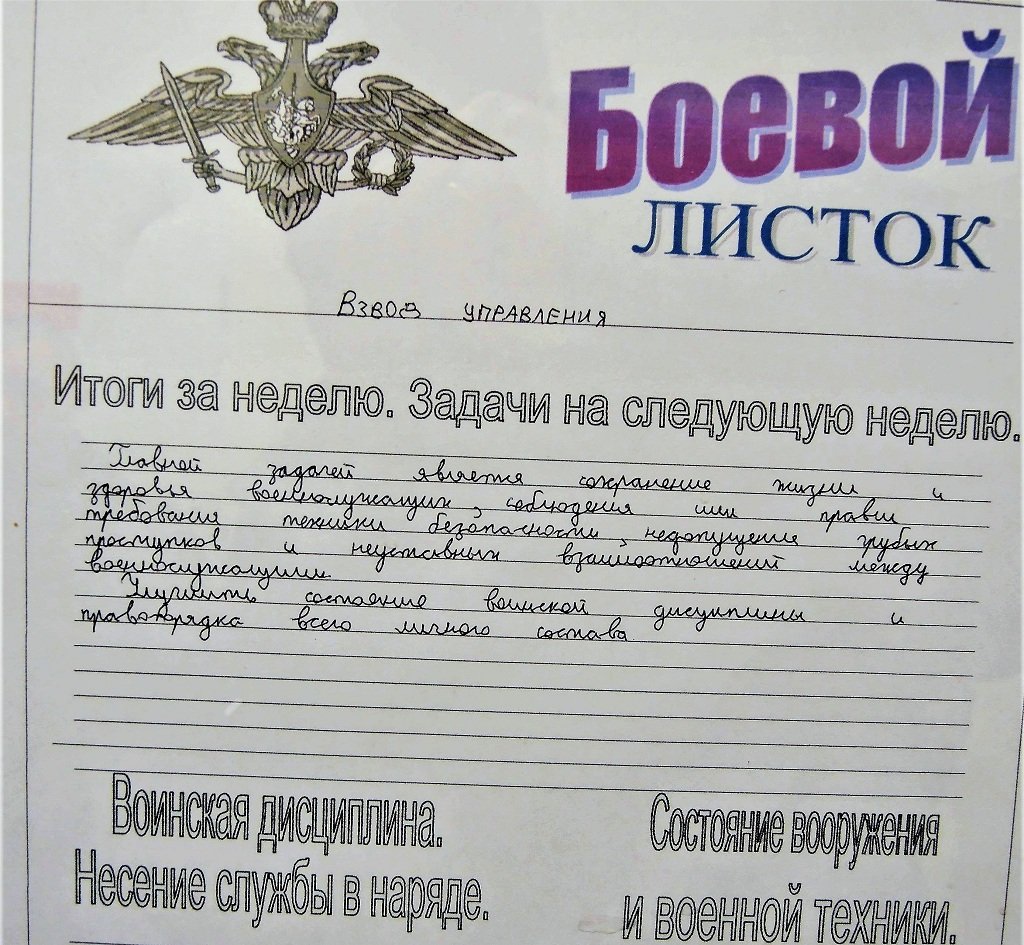 Боевой
ЛИСТОК
Взвод управления
Итоги за неделю. Задачи на следующую неделю.
Главной задачей является сохранение жизни и
здоровья военнослужащих, соблюдения ими правил
требований техники безопасности, недопущение грубых
проступков и неуставных взаимоотношений между
военнослужащими.
Улучшить состояние воинской дисциплины и
правопорядка всего личного состава
Воинская дисциплина.
Несение службы в наряде.
Состояние вооружения
и военной техники.